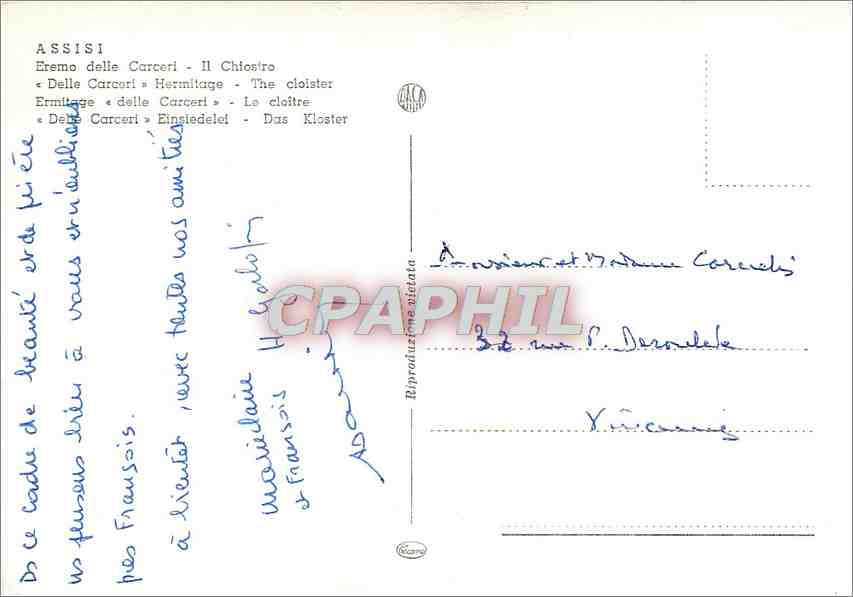 ASSISI
Eremo delle Carceri - Il Chiostro
« Delle Carceri » Hermitage - The cloister
Ermitage « delle Carceri » - Le cloître
« Delle Carceri » Einsiedelei - Das Kloster
Ds ce cadre de beauté et de prière
ns pensons bien à vous et n'oublions
pas François.
à bientôt, avec toutes nos amitiés
Marieclaire
et François
H
DACA
Riproduzione vietata
Monsieur et Madame
32 rue P. Deroulede
Vincennes
CPAPHIL